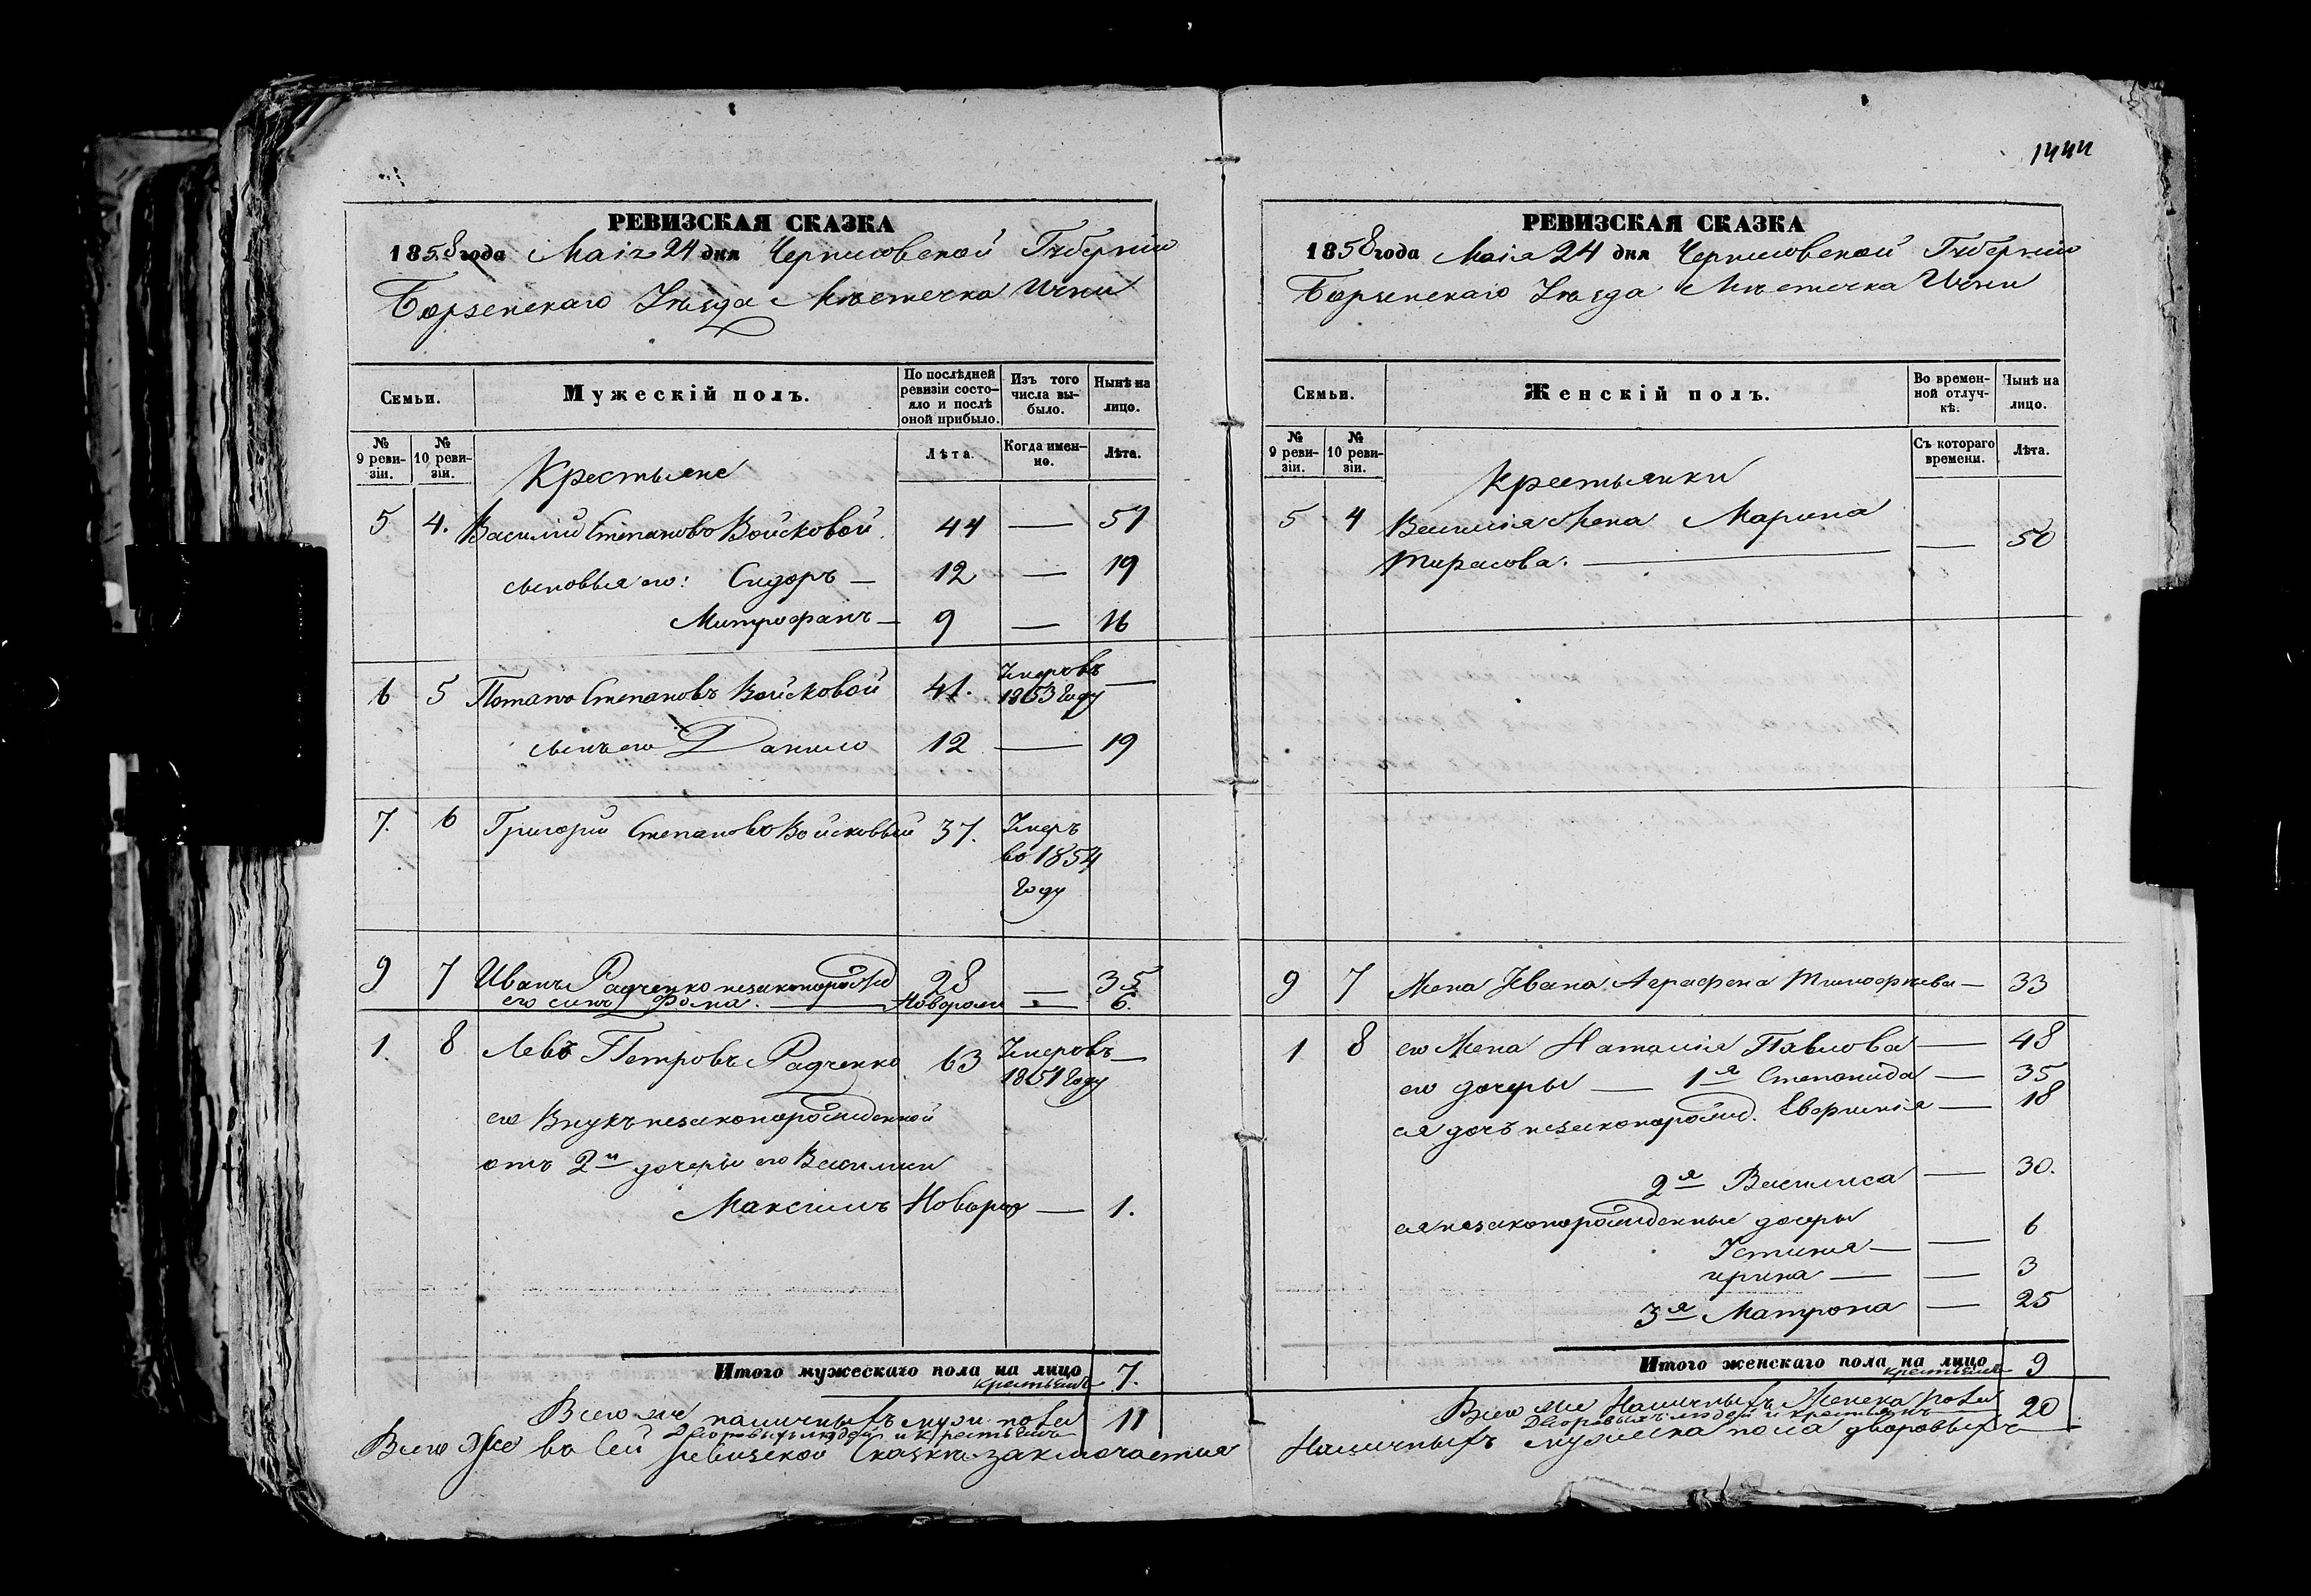 1444
РЕВИЗСКАЯ СКАЗКА
1858 года Маія 24 дня Черниговской Губерніи
Борзенскаго Уѣзда Мѣстечка Ични
Семьи.
Мужескій полъ.
По послѣдней ревизіи состояло и послѣ оной прибыло.
Изъ того числа выбыло.
Нынѣ на лицо.
№ 9 ревизіи.
№ 10 ревизіи.
Лѣта.
Когда именно.
Лѣта.
Крестьяне
5 4. Василий Степановъ Войсковой 44 — 51
сыновья его: Сидоръ — 12 — 19
Митрофанъ — 9 — 16
6 5 Потапъ Степановъ Войсковой 41. Умеръ въ 1853 Году —
сынъ его Данило 12 — 19
7. 6 Григорій Степановъ Войсковый 37. Умеръ во 1854 Году
9 7 Иванъ Радченко незаконорожд 28 — 35
его синъ Фома. — Новорож — 6.
1. 8 Левъ Петровъ Радченко 63 Умеръ въ 1851 Году —
его Внукъ незаконорожденной
отъ 2й дочери его Василиси
Максимъ Новорож — 1.
Итого мужескаго пола на лицо 7.
крестьянъ
Всего же наличныхъ муж. пола 11
Дворовыхъ людей и крестьянъ
Всего Же въ сей ревизской сказкѣ заключается
РЕВИЗСКАЯ СКАЗКА
1858 года Маія 24 дня Черниговской Губерніи
Борзенскаго Уѣзда Мѣстечка Ични
Семьи.
Женскій полъ.
Во временной отлучкѣ.
Нынѣ на лицо.
№ 9 ревизіи.
№ 10 ревизіи.
Съ котораго времени.
Лѣта.
Крестьянки
5 4 Василія Жена Марина
Тарасова. — — 50
9 7 Жена Ивана Аграфена Тимофѣева — 33
1 8 его Жена Наталія Павлова — 48
его дочеры — 1я Степанида — 35
ея дочъ незаконорожд. Евфимія — 18
2я Василиса — 30.
ея незаконорожденные дочеры
Устинія — — 6
ирина — — 3
3я Матрона — 25
Итого женскаго пола на лицо 9
крестьянъ
Всего же Наличныхъ Женска пола 20
Дворовыхъ людей и крестьянъ
Наличныхъ мужеска пола дворовыхъ